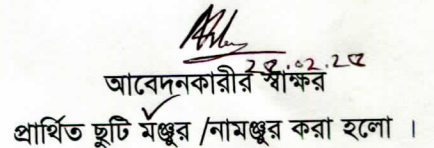 আবেদনকারীর স্বাক্ষর
প্রার্থিত ছুটি মঞ্জুর /নামঞ্জুর করা হলো ।